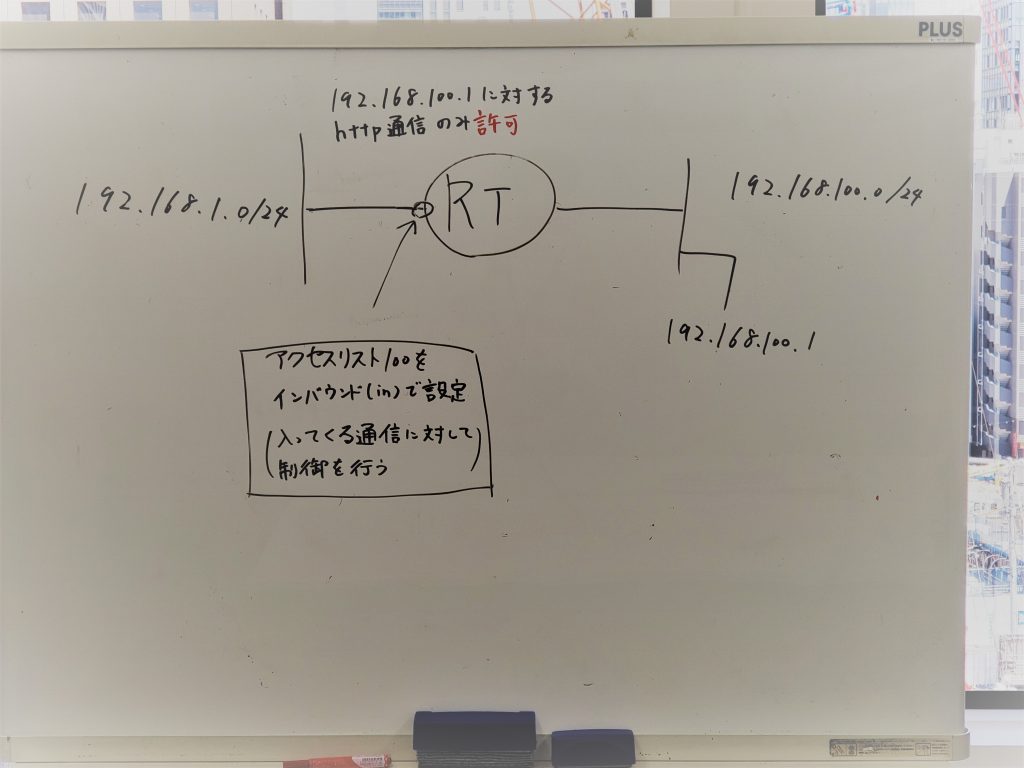 PLUS
192.168.100.1に対する
http通信のみ許可
192.168.1.0/24
RT
192.168.100.0/24
192.168.100.1
アクセスリスト100を
インバウンド(in)で設定
(入ってくる通信に対して
制御を行う)